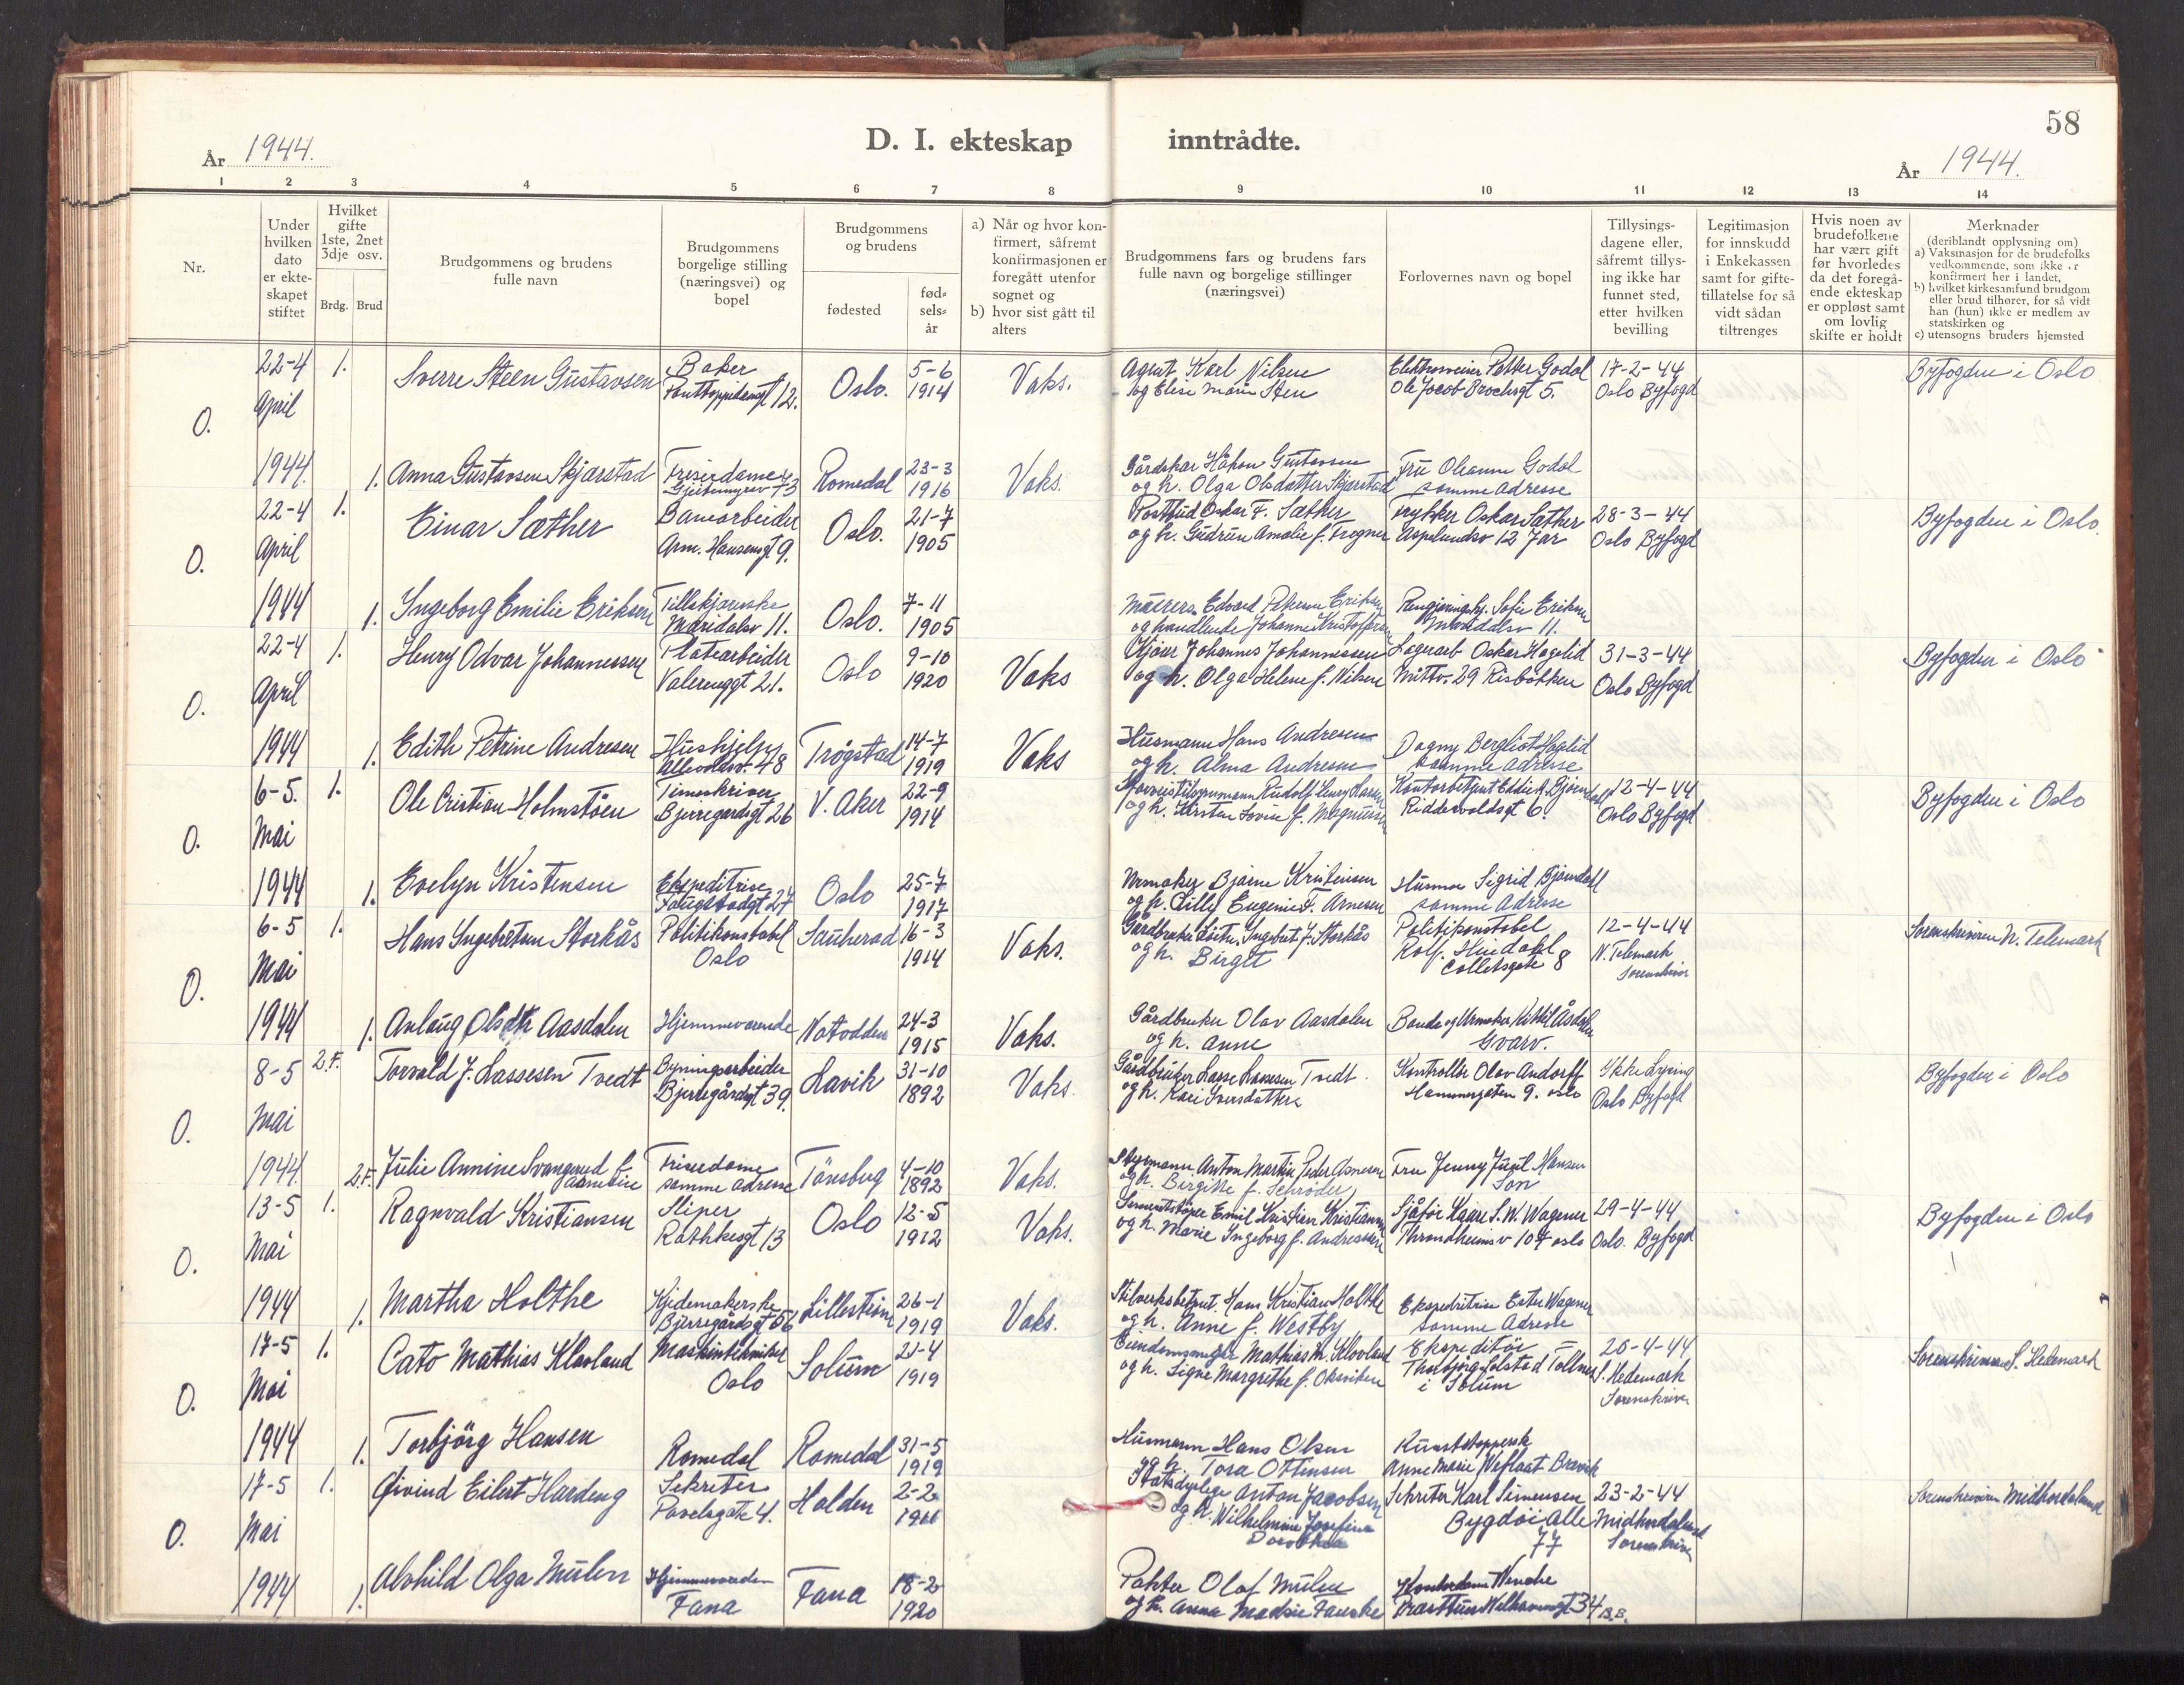 58
D. I. ekteskap inntrådte.
År 1944. År 1944.
1 2 3 4 5 6 7 8 9 10 11 12 13 14
Nr.
Under hvilken dato er ekte-skapet stiftet
Hvilket gifte 1ste, 2net 3dje osv.
Brdg. Brud
Brudgommens og brudens fulle navn
Brudgommens borgelige stilling (næringsvei) og bopel
Brudgommens og brudens
fødested
fød-sels-år
a) Når og hvor kon-firmert, såfremt konfirmasjonen er foregått utenfor sognet og
b) hvor sist gått til alters
Brudgommens fars og brudens fars fulle navn og borgelige stillinger (næringsvei)
Forlovernes navn og bopel
Tillysings-dagene eller, såfremt tillys-ing ikke har funnet sted, etter hvilken bevilling
Legitimasjon for innskudd i Enkekassen samt for gifte-tillatelse for så vidt sådan tiltrenges
Hvis noen av brudefolkene har vært gift før hvorledes da det foregå-ende ekteskap er oppløst samt om lovlig skifte er holdt
Merknader
(deriblandt opplysning om)
a) Vaksinasjon for de brudefolks vedkommende, som ikke er konfirmert her i landet,
b) hvilket kirkesamfund brudgom eller brud tilhører, for så vidt han (hun) ikke er medlem av statskirken og
c) utensogns bruders hjemsted
O. 22-4 April 1944 1. Sverre Steen Gustavsen Baker 12. Oslo. 5-6 1914 Vaks. Agent Karl Nilsen og Elise Marie Sten Petter Godal Ole Jacob Brochsgt 5. 17-2-44 Oslo Byfogd Byfogden i Oslo
1. Anna Gustavsen Skjærstad Frisørdame 73 Romedal 23-3 1916 Vaks. Håkon Gustavsen og h. Olga Olsdatter Skjærstad Fru Oleanne Godal samme adresse
O. 22-4 April 1944 1. Einar Sæther Banearbeider Arm. Hansensgt 9. Oslo. 21-7 1905 Postbud Oskar F. Sæther og h. Gudrun Amalie f. Fragner Trykker Oskar Sæther 12 Jar 28-3-44 Oslo Byfogd Byfogden i Oslo.
1. Ingeborg Emilie Eriksen Tilskjærerske Maridalsv 11. Oslo. 7-11 1905 Edvard Petersen Eriksen og handlende Johanne Kristoffersen Sofie Eriksen Maridalsv 11.
O. 22-4 April 1944 1. Henry Odvar Johannessen Platearbeider Valerenggt 21. Oslo 9-10 1920 Vaks Johannes Johannessen og h. Olga Helene f. Nilsen Lagerarb Oskar Hagelid 29 Risløkken 31-3-44 Oslo Byfogd Byfogden i Oslo
1. Edith Petrine Andresen Hushjelp 48 Trøgstad 14-7 1919 Vaks Husmann Hans Andresen og h. Alma Andresen Dagny Bergliot Hagelid samme adresse
O. 6-5. Mai 1944 1. Ole Cristian Holmstøen Timeskriver Bjerregårdsgt 26 V. Aker 22-9 1914 Rudolf Henry Hansen og h. Kirsten Lovise f. Magnussen Riddervoldsgt 6. 12-4-44 Oslo Byfogd Byfogden i Oslo
1. Evelyn Kristensen Ekspeditrise 27 Oslo 25-7 1917 Urmaker Bjarne Kristensen og h. Lilly Eugenie F. Arnesen Husmor Sigrid Bjørndal samme adresse
O. 6-5 Mai 1944 1. Hans Ingebretsen Storkås Politikonstabel Oslo Sauherad 16-3 1914 Vaks. Gårdbruker Ingebret J. Storkås og h. Birgit Politikonstabel Rolf. Hindahl Colletsgate 8 12-4-44 N. Telemark Sorenskriver Sorenskriveren N. Telemark
1. Anlaug Olsdtr Aasdalen Hjemmeværende Notodden 24-3 1915 Vaks. Gårdbruker Olav Aasdalen og h. Anne Bonde og Urmaker Kittil Åsdalen Gvarv.
O. 8-5 Mai 1944. 2.F. Torvald J. Lassesen Tvedt Bygningsarbeider Bjerregårdsgt 39. Lavik 31-10 1892 Vaks. Gårdbruker Lasse Lassesen Tvedt. og h. Kari Iversdatter Kontrollør Olav Andorff Hammergaten 9. Oslo Ikke Lysing Oslo Byfogd Byfogden i Oslo
2.F. Julie Annine Svangerud f. Asmervik Frisørdame samme adresse Tønsberg 4-10 1892 Vaks. Anton Martin Peder Asmersen og h. Birgitte f. Schrøder Fru Jenny Juul Hansen Son
O. 13-5 Mai 1944 1. Ragnvald Kristiansen Sliper Rathkesgt 13 Oslo 12-5 1912 Vaks. Emil Kristian Kristiansen og h. Marie Ingeborg f. Andresen Sjåfør Kaare S. W. Wagener Throndheimsv 107 Oslo 29-4-44 Oslo. Byfogd Byfogden i Oslo
1. Martha Holthe Kjedemakerske Bjerregårdsgt 56 Lillestrøm 26-1 1919 Vaks. Hans Kristian Holthe og h. Anne f. Westby Ekspeditrise Ester Wagener samme Adresse
O. 17-5 Mai 1944 1. Cato Mathias Klovland Maskintekniker Oslo Solum 21-4 1919 Eiendomsmegler Mathias M. Klovland og h. Signe Margrethe f. Oksviken Ekspeditør Thorbjørg Solstad Tollnes i Solum 20-4-44 S. Hedemark Sorenskriver Sorenskriveren S. Hedemark
1. Torbjörg Hansen Romedal Romedal 31-5 1919 Husmann Hans Olsen og h. Tora Ottensen Kunststopperske Anne Marie Brevik
O. 17-5 Mai 1944 1. Øivind Eilert Hardeng Sekretær Pavelsgate 4. Halden 2-2 Anton Jacobsen og h. Wilhelmine Josefine Dorothea Sekretær Karl Simensen Bygdøi Alle 77 23-2-44 Midhordaland Sorenskriver Sorenskriveren Midhordaland
1. Alvhild Olga Mülen Hjemmeværende Fana Fana 18-2 1920 Olaf Mülen og h. Anna Madsie Fauske Kontordame Wenche 34 B.B.